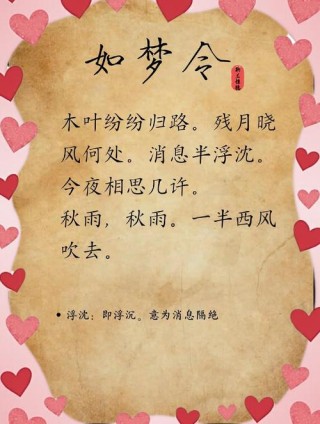 如梦令
木叶纷纷归路。残月晓
风何处。消息半浮沈。
今夜相思几许。
秋雨，秋雨。一半西风
吹去。
• 浮沈：即浮沉。意为消息隔绝